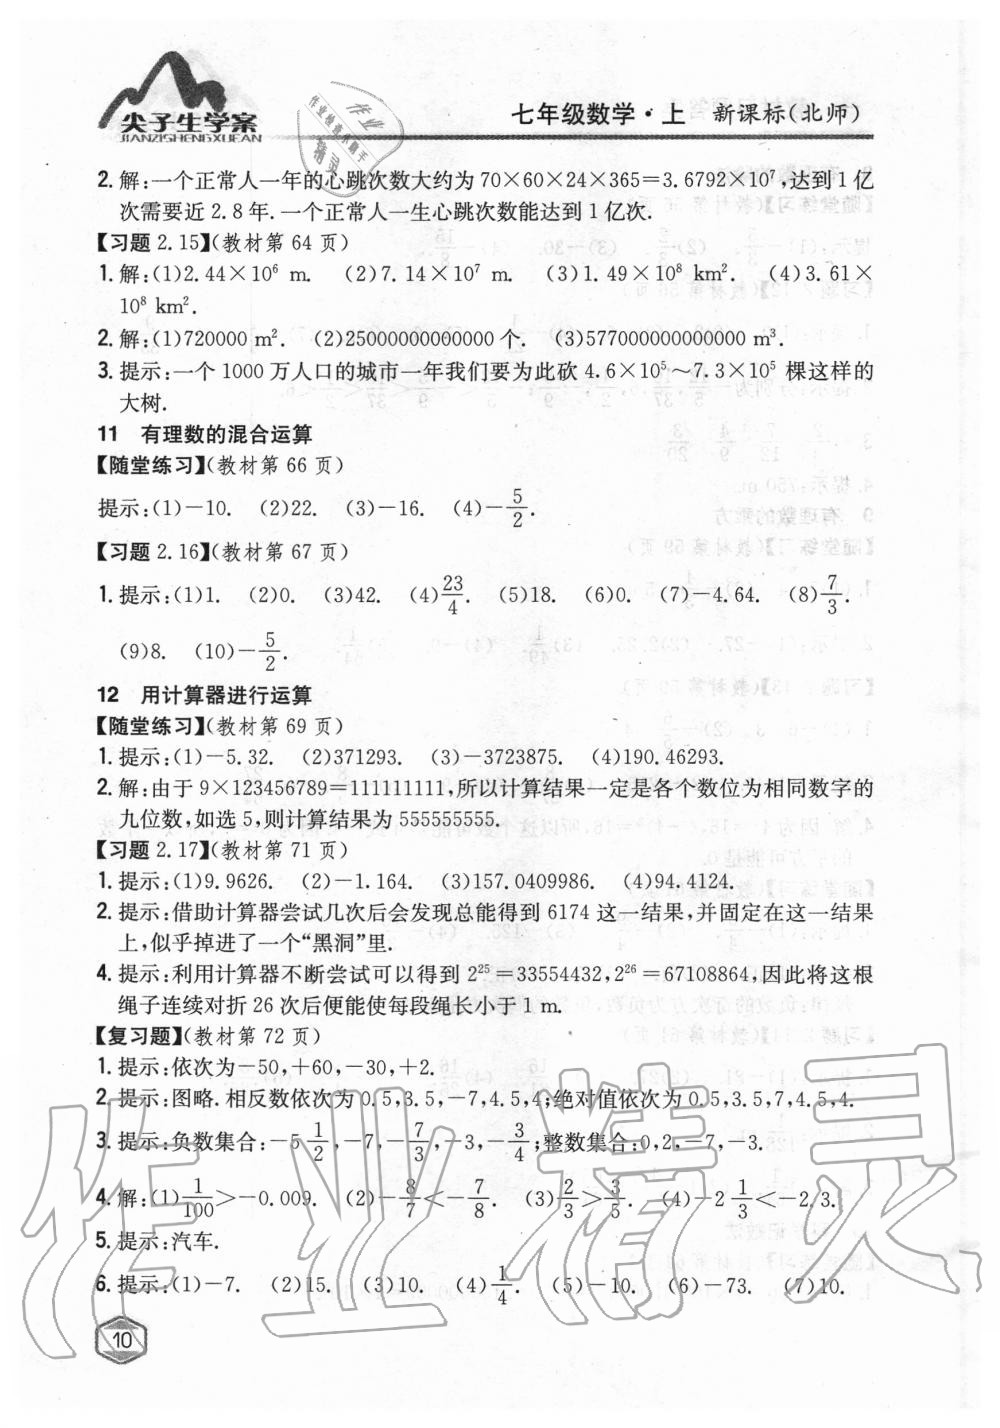 尖子生学案
JIANZISHENGXUEAN
七年级数学·上 新课标(北师)
2.解:一个正常人一年的心跳次数大约为 70×60×24×365=3.6792×10⁷,达到 1 亿
次需要近 2.8 年.一个正常人一生心跳次数能达到 1 亿次.
【习题 2.15】(教材第 64 页)
1.解:(1)2.44×10⁶ m. (2)7.14×10⁷ m. (3)1.49×10⁸ km². (4)3.61×
10⁸ km².
2.解:(1)720000 m². (2)25000000000000 个. (3)577000000000000 m³.
3.提示:一个 1000 万人口的城市一年我们要为此砍 4.6×10⁵～7.3×10⁵ 棵这样的
大树.
11 有理数的混合运算
【随堂练习】(教材第 66 页)
提示:(1)-10. (2)22. (3)-16. (4)-5/2.
【习题 2.16】(教材第 67 页)
1.提示:(1)1. (2)0. (3)42. (4)23/4. (5)18. (6)0. (7)-4.64. (8)7/3.
(9)8. (10)-5/2.
12 用计算器进行运算
【随堂练习】(教材第 69 页)
1.提示:(1)-5.32. (2)371293. (3)-3723875. (4)190.46293.
2.解:由于 9×123456789=111111111,所以计算结果一定是各个数位为相同数字的
九位数,如选 5,则计算结果为 555555555.
【习题 2.17】(教材第 71 页)
1.提示:(1)9.9626. (2)-1.164. (3)157.0409986. (4)94.4124.
2.提示:借助计算器尝试几次后会发现总能得到 6174 这一结果,并固定在这一结果
上,似乎掉进了一个“黑洞”里.
4.提示:利用计算器不断尝试可以得到 2²⁵=33554432,2²⁶=67108864,因此将这根
绳子连续对折 26 次后便能使每段绳长小于 1 m.
【复习题】(教材第 72 页)
1.提示:依次为-50,+60,-30,+2.
2.提示:图略.相反数依次为 0.5,3.5,-7,4.5,4;绝对值依次为 0.5,3.5,7,4.5,4.
3.提示:负数集合:-5 1/2,-7,-7/3,-3,-3/4;整数集合:0,2,-7,-3.
4.解:(1)1/100>-0.009. (2)-8/7<-7/8. (3)2/3>3/5. (4)-2 1/3<-2.3.
5.提示:汽车.
6.提示:(1)-7. (2)15. (3)10. (4)1/4. (5)-10. (6)-73. (7)10.
10
作业精灵